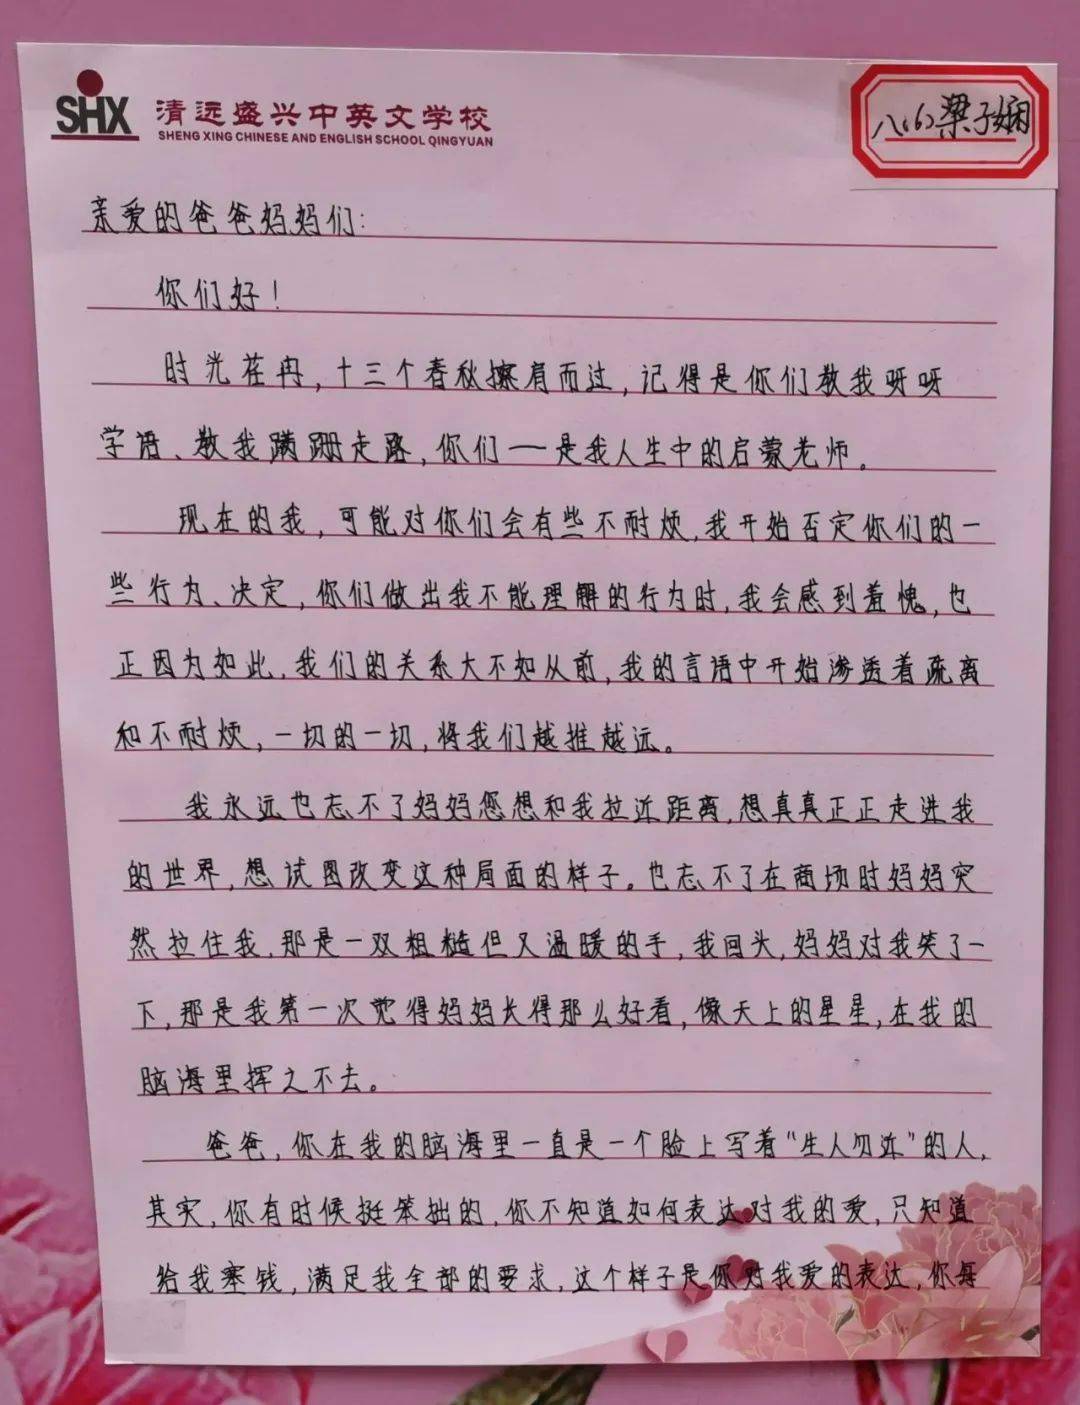 SHX 清远盛兴中英文学校
SHENG XING CHINESE AND ENGLISH SCHOOL QINGYUAN
八(6)梁子娴
亲爱的爸爸妈妈们:
你们好!
时光荏冉,十三个春秋擦肩而过,记得是你们教我呀呀
学语、教我蹒跚走路,你们——是我人生中的启蒙老师。
现在的我,可能对你们会有些不耐烦,我开始否定你们的一
些行为、决定,你们做出我不能理解的行为时,我会感到羞愧,也
正因为如此,我们的关系大不如从前,我的言语中开始渗透着疏离
和不耐烦,一切的一切,将我们越推越远。
我永远也忘不了妈妈您想和我拉近距离,想真真正正走进我
的世界,想试图改变这种局面的样子。也忘不了在商场时妈妈突
然拉住我,那是一双粗糙但又温暖的手,我回头,妈妈对我笑了一
下,那是我第一次觉得妈妈长得那么好看,像天上的星星,在我的
脑海里挥之不去。
爸爸,你在我的脑海里一直是一个脸上写着“生人勿近”的人,
其实,你有时候挺笨拙的,你不知道如何表达对我的爱,只知道
给我塞钱,满足我全部的要求,这个样子是你对我爱的表达,你每